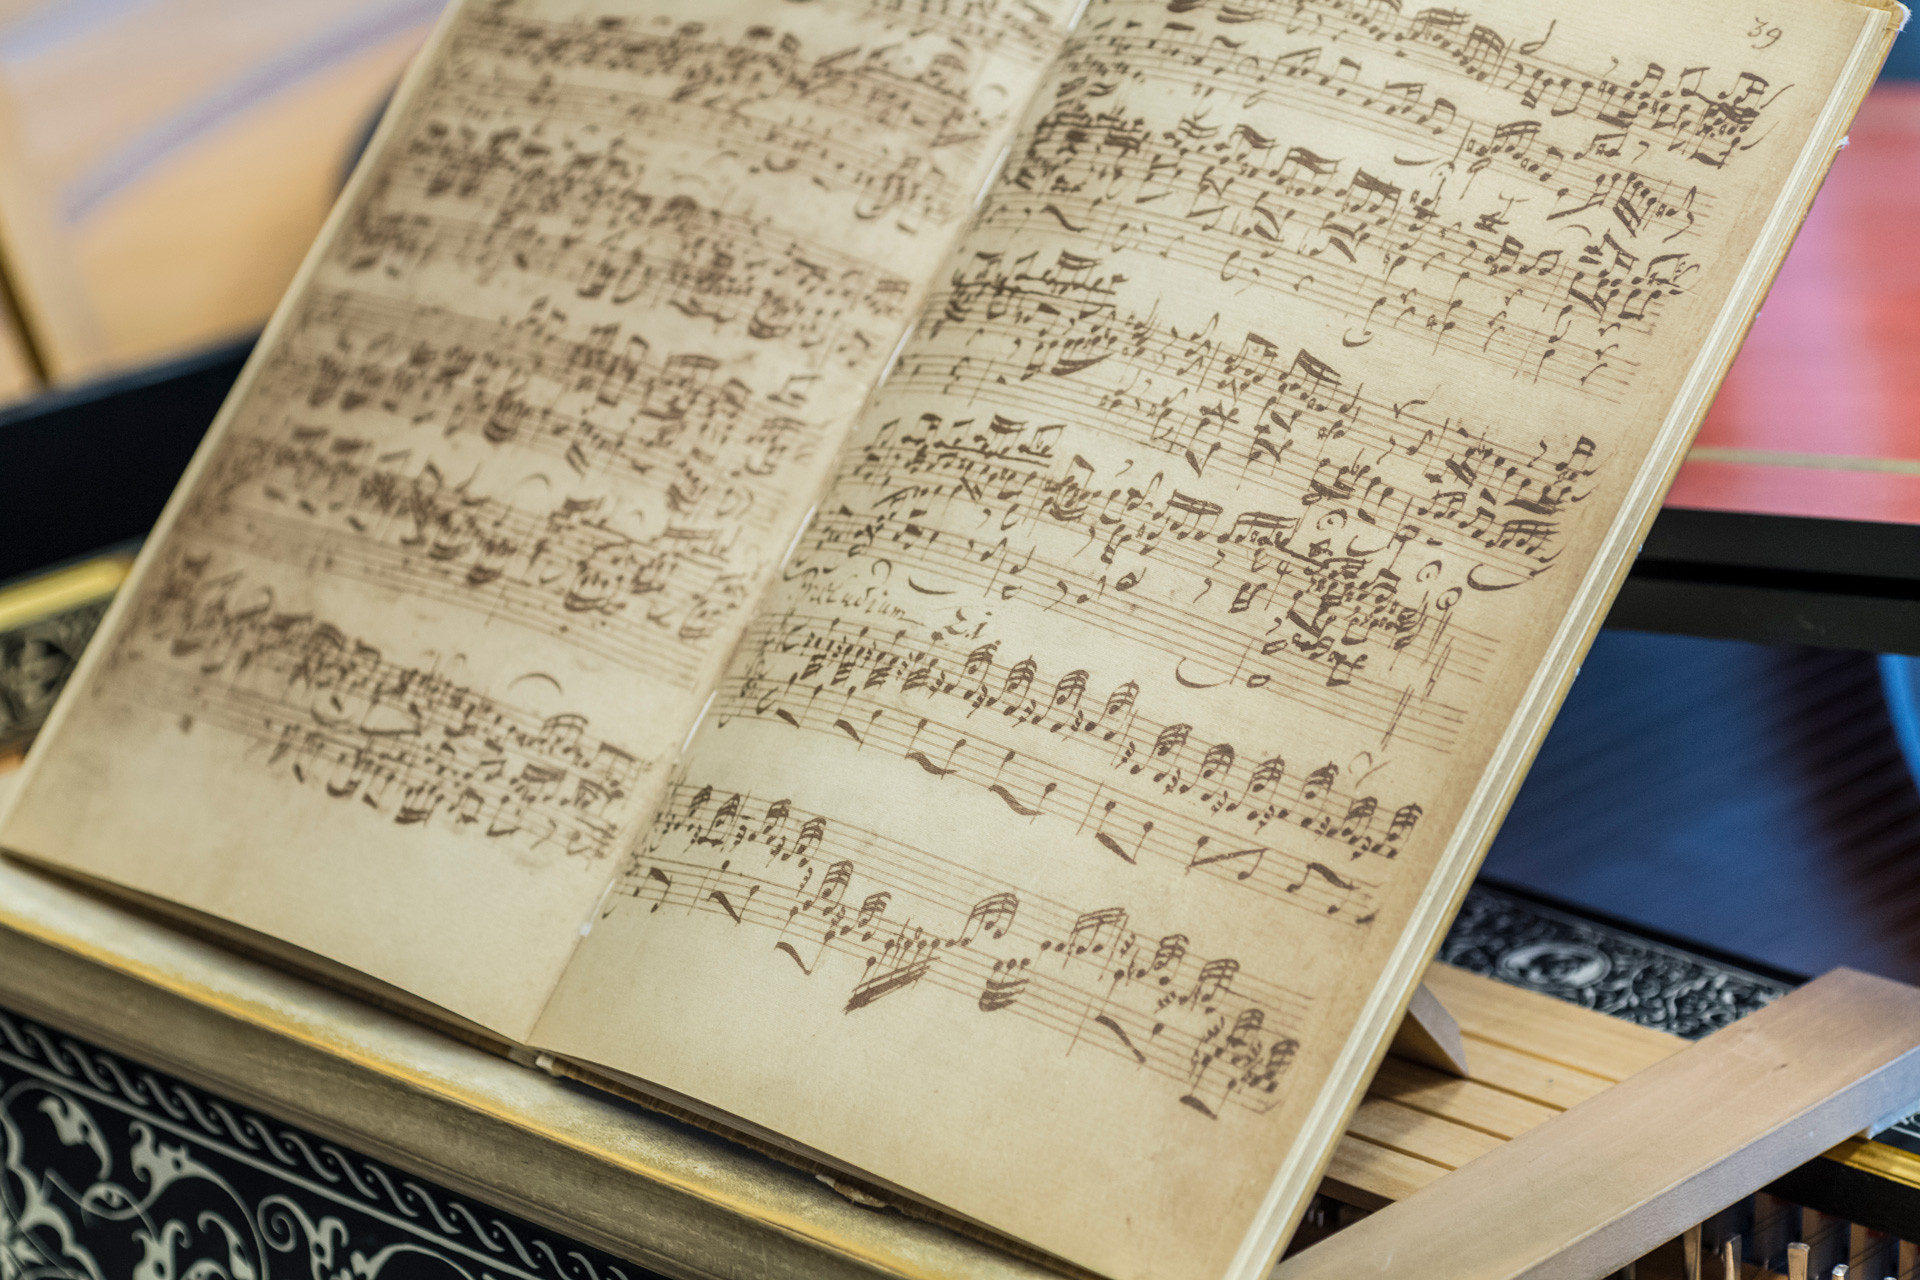 39
Præludium 21